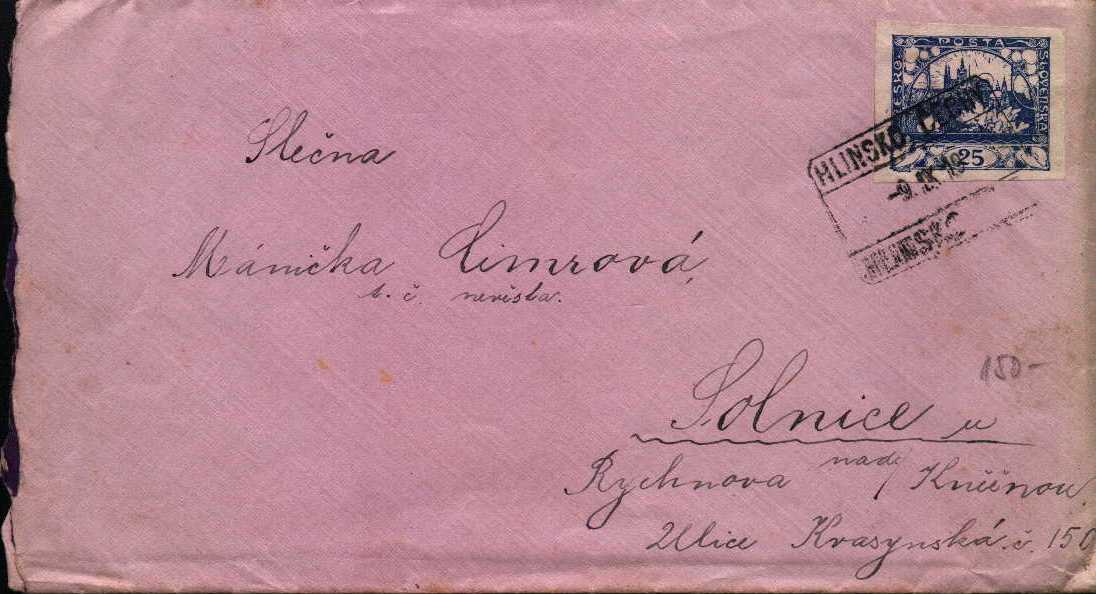 POSTA
ČESKO
SLOVENSKÁ
25
HLINSKO
-9.IX.19
HLINSKO
Slečna
Mánička Cimrová,
t. č. nevěsta.
150-
Solnice u
Rychnova nad Kněžnou.
Ulice Kvasynská č. 150